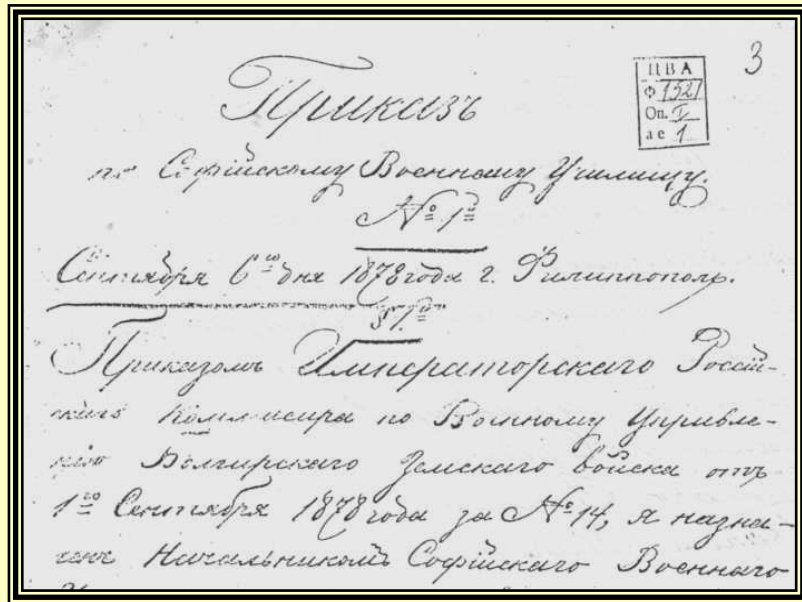 3
ЦВА
Ф 1527
Оп. I
ае 1
Приказъ
по Софійскому Военному Училищу.
№ 1й
Сентября 6го дня 1878 года г. Филиппополь.
§ 1й
Приказомъ Императорскаго Россій-
скаго Коммисара по Военному Управле-
нію Болгарскаго Земскаго войска отъ
1го Сентября 1878 года за № 14, я назна-
ченъ Начальникомъ Софійскаго Военнаго